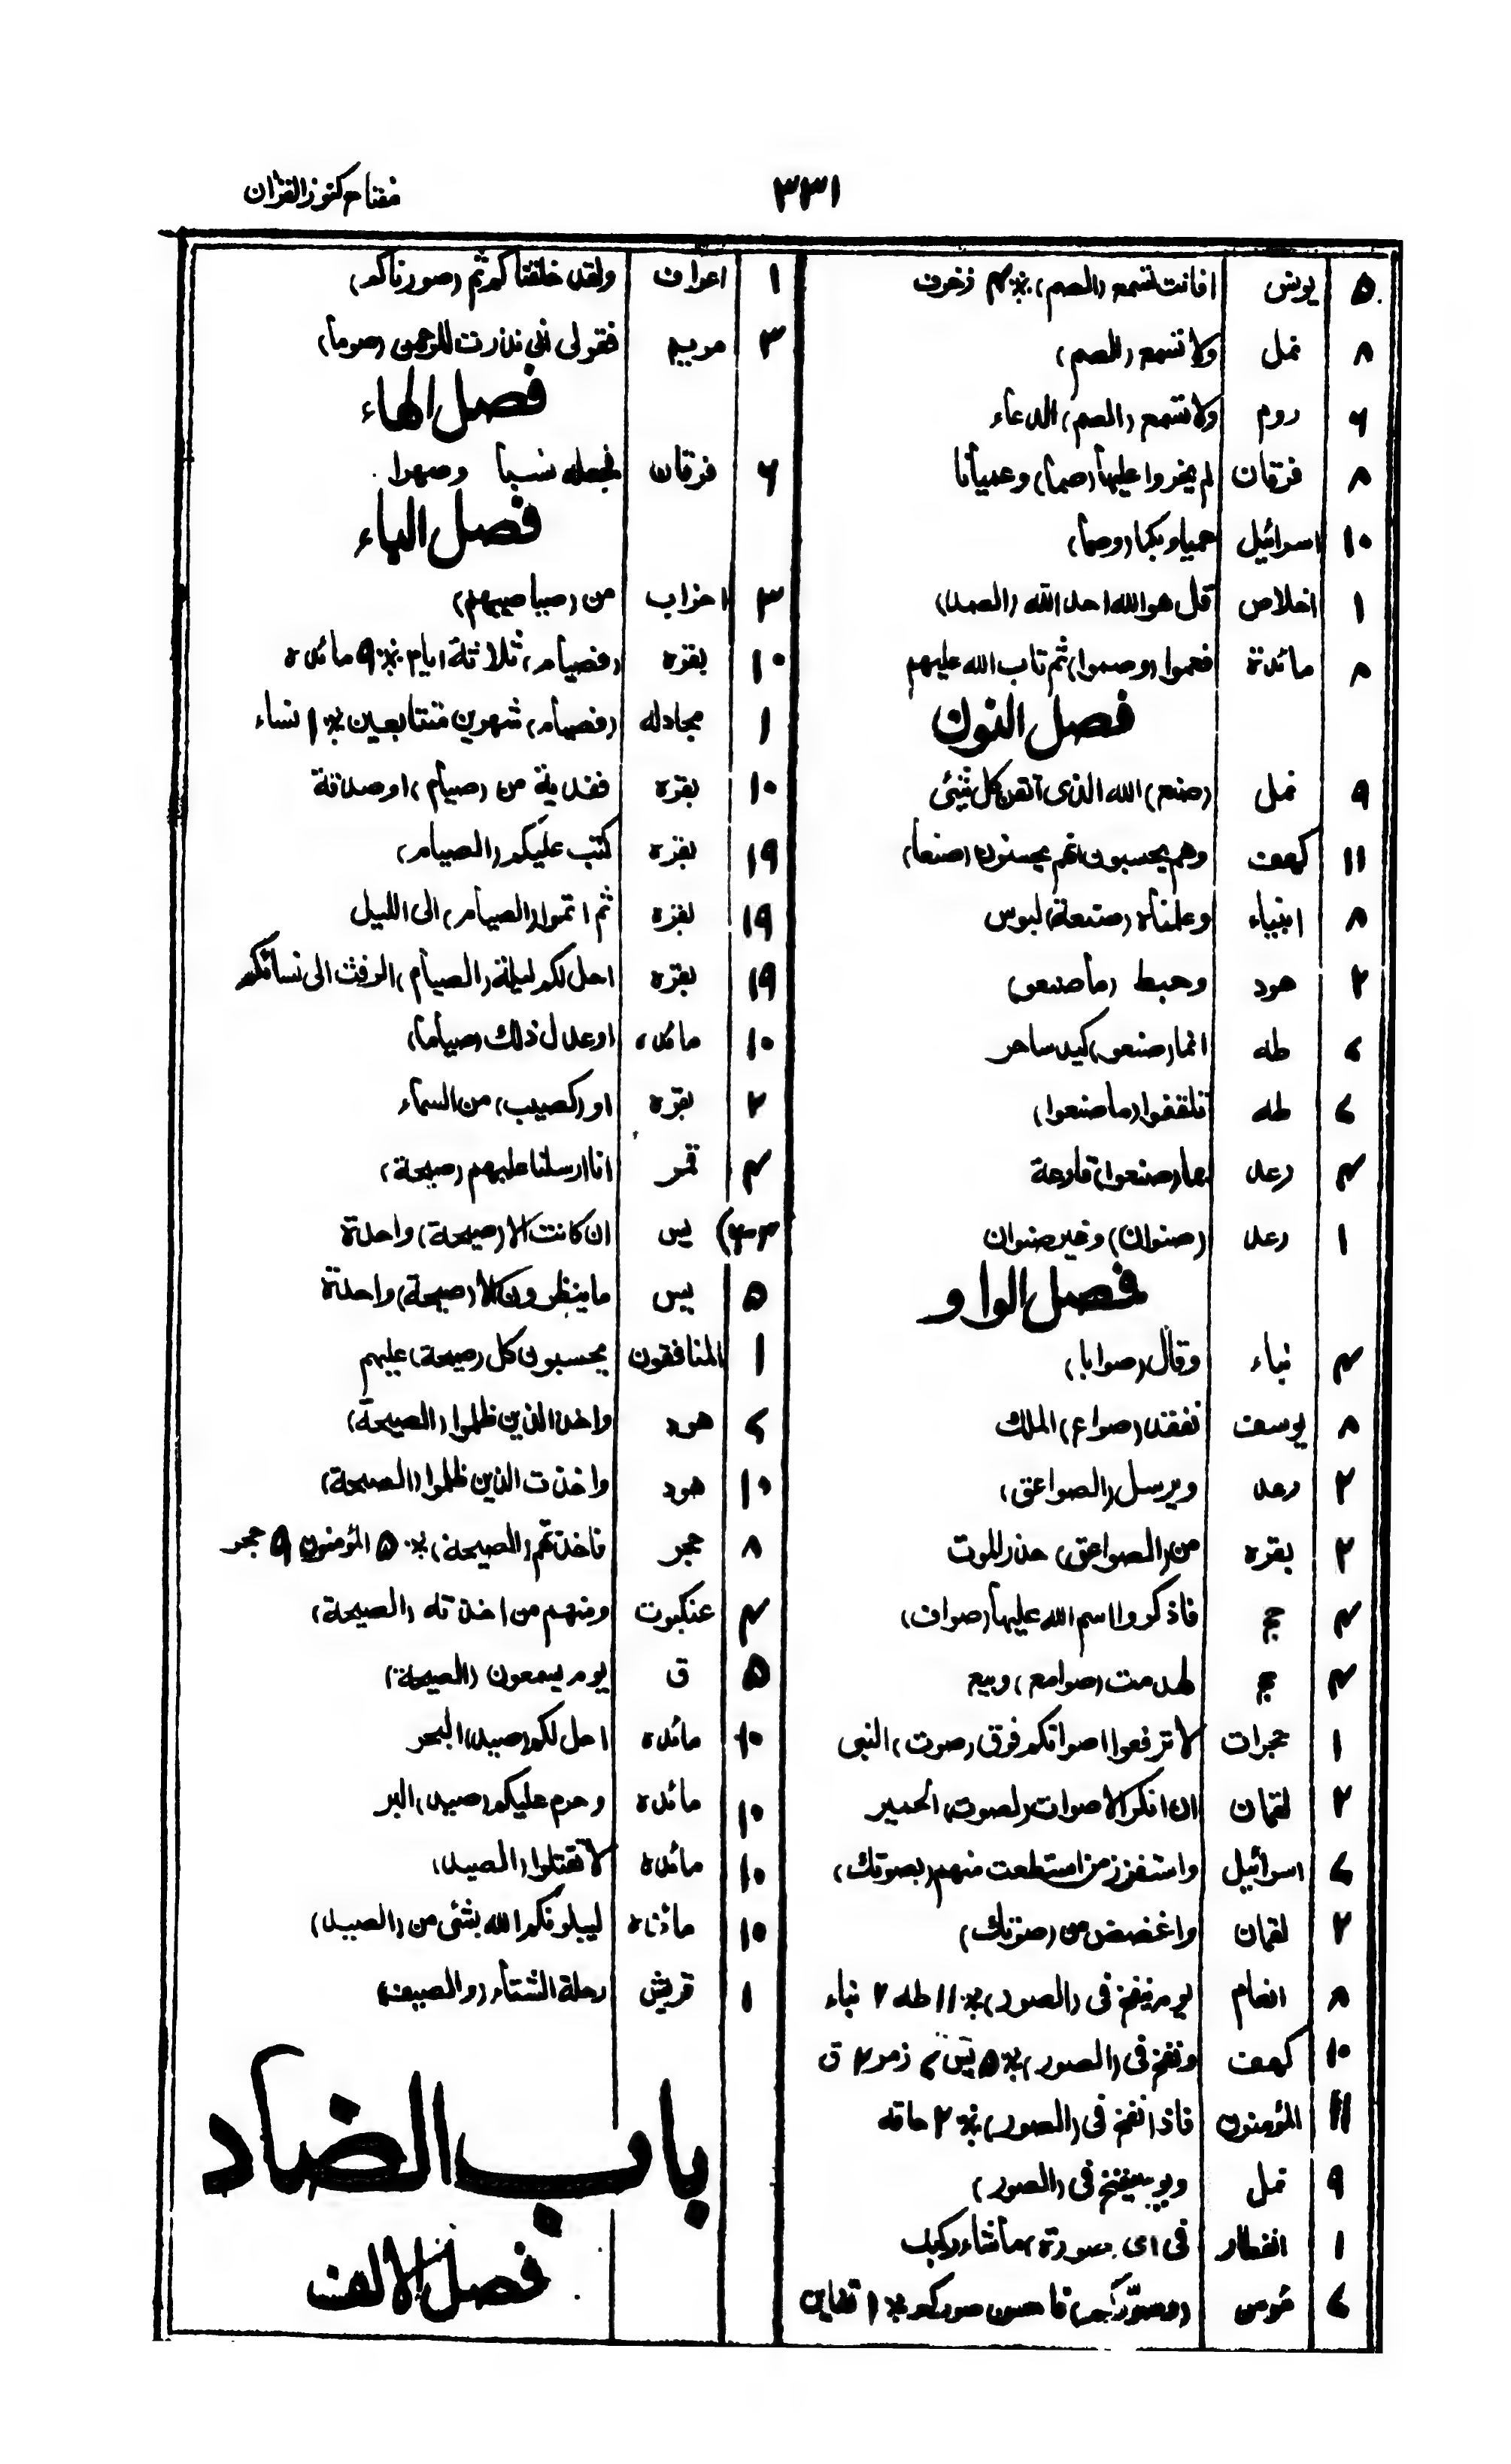 ۳۳۱
مفتاح كنوز القرآن
۵ يونس افانت تسمع (الصم) ٪ ۴ زخرف
۸ نمل ولا تسمع (الصم)
۶ روم ولا تسمع (الصم) الدعاء
۸ فرقان لم يخروا عليها (صما) وعميانا
۱۰ اسرائيل عميا وبكما (وصما)
۱ اخلاص قل هو الله احد الله (الصمد)
۸ مائدة فعموا (وصموا) ثم تاب الله عليهم
فصل النون
۹ نمل (صنع) الله الذى اتقن كل شئى
۱۱ كهف وهم يحسبون انهم يحسنون (صنعا)
۸ انبياء وعلمناه (صنعة) لبوس
۲ هود وحبط (ما صنعو)
۷ طه انما (صنعو) كيد ساحر
۷ طه تلقفوا (ما صنعوا)
۴ رعد بما (صنعوا) قارعة
۱ رعد (صنوان) وغير صنوان
فصل الواو
۴ نباء وقال (صوابا)
۸ يوسف نفقد (صواع) الملك
۲ رعد ويرسل (الصواعق)
۲ بقره من (الصواعق) حذر الموت
۴ حج فاذكروا اسم الله عليها (صواف)
۴ حج لهدمت (صوامع) وبيع
۱ حجرات لا ترفعوا اصواتكم فوق (صوت) النبى
۲ لقمان ان انكر الاصوات (لصوت) الحمير
۷ اسرائيل واستفزز من استطعت منهم (بصوتك)
۲ لقمان واغضض من (صوتك)
۸ انعام يوم ينفخ فى (الصور) ٪ ۱۱ طه ۲ نباء
۱۰ كهف ونفخ فى (الصور) ٪ ۵ يس ۷ زمر ۲ ق
۱۱ المؤمنون فاذا نفخ فى (الصور) ٪ ۲ حاقه
۹ نمل ويوم ينفخ فى (الصور)
۱ انفطار فى اى صورة ما شاء ركبك
۷ مومن (وصوركم) فاحسن صوركم ٪ ۱ تغابن
۱ اعراف ولقد خلقناكم ثم (صورناكم)
۳ مريم فقولى انى نذرت للرحمن (صوما)
فصل الهاء
۶ فرقان فجعله نسبا وصهرا
فصل الياء
۳ احزاب من (صياصيهم)
۱۰ بقره (فصيام) ثلاثة ايام ٪ ۹ مائده
۱ مجادله (فصيام) شهرين متتابعين ٪ ۱ نساء
۱۰ بقره ففدية من (صيام) او صدقة
۱۹ بقره كتب عليكم (الصيام)
۱۹ بقره ثم اتموا (الصيام) الى الليل
۱۹ بقره احل لكم ليلة (الصيام) الرفث الى نسائكم
۱۰ مائده او عدل ذلك (صياما)
۲ بقره او (كصيب) من السماء
۴ قمر انا ارسلنا عليهم (صيحة)
يس ان كانت الا (صيحة) واحدة
۵ يس ما ينظرون الا (صيحة) واحدة
۱ المنافقون يحسبون كل (صيحة) عليهم
۶ هود واخذ الذين ظلموا (الصيحة)
۱۰ هود واخذت الذين ظلموا (الصيحة)
۸ حجر فاخذتهم (الصيحة) ٪ ۵ المؤمنون ۹ حجر
۴ عنكبوت ومنهم من اخذته (الصيحة)
۵ ق يوم يسمعون (الصيحة)
۱۰ مائده احل لكم (صيد) البحر
۱۰ مائده وحرم عليكم (صيد) البر
۱۰ مائده لا تقتلوا (الصيد)
۱۰ مائده ليبلونكم الله بشئى من (الصيد)
۱ قريش رحلة الشتاء (والصيف)
باب الضاد
فصل الالف